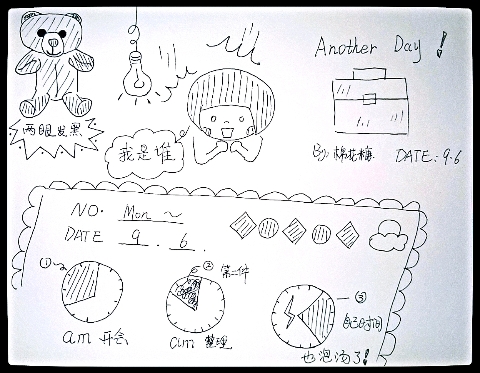 Another Day!
两眼发黑
我是谁
By 棉花梅
DATE: 9.6
NO. Mon ~
DATE 9.6.
①
② 第二件
am 开会
am 整理
③
自己时间
也泡汤了!